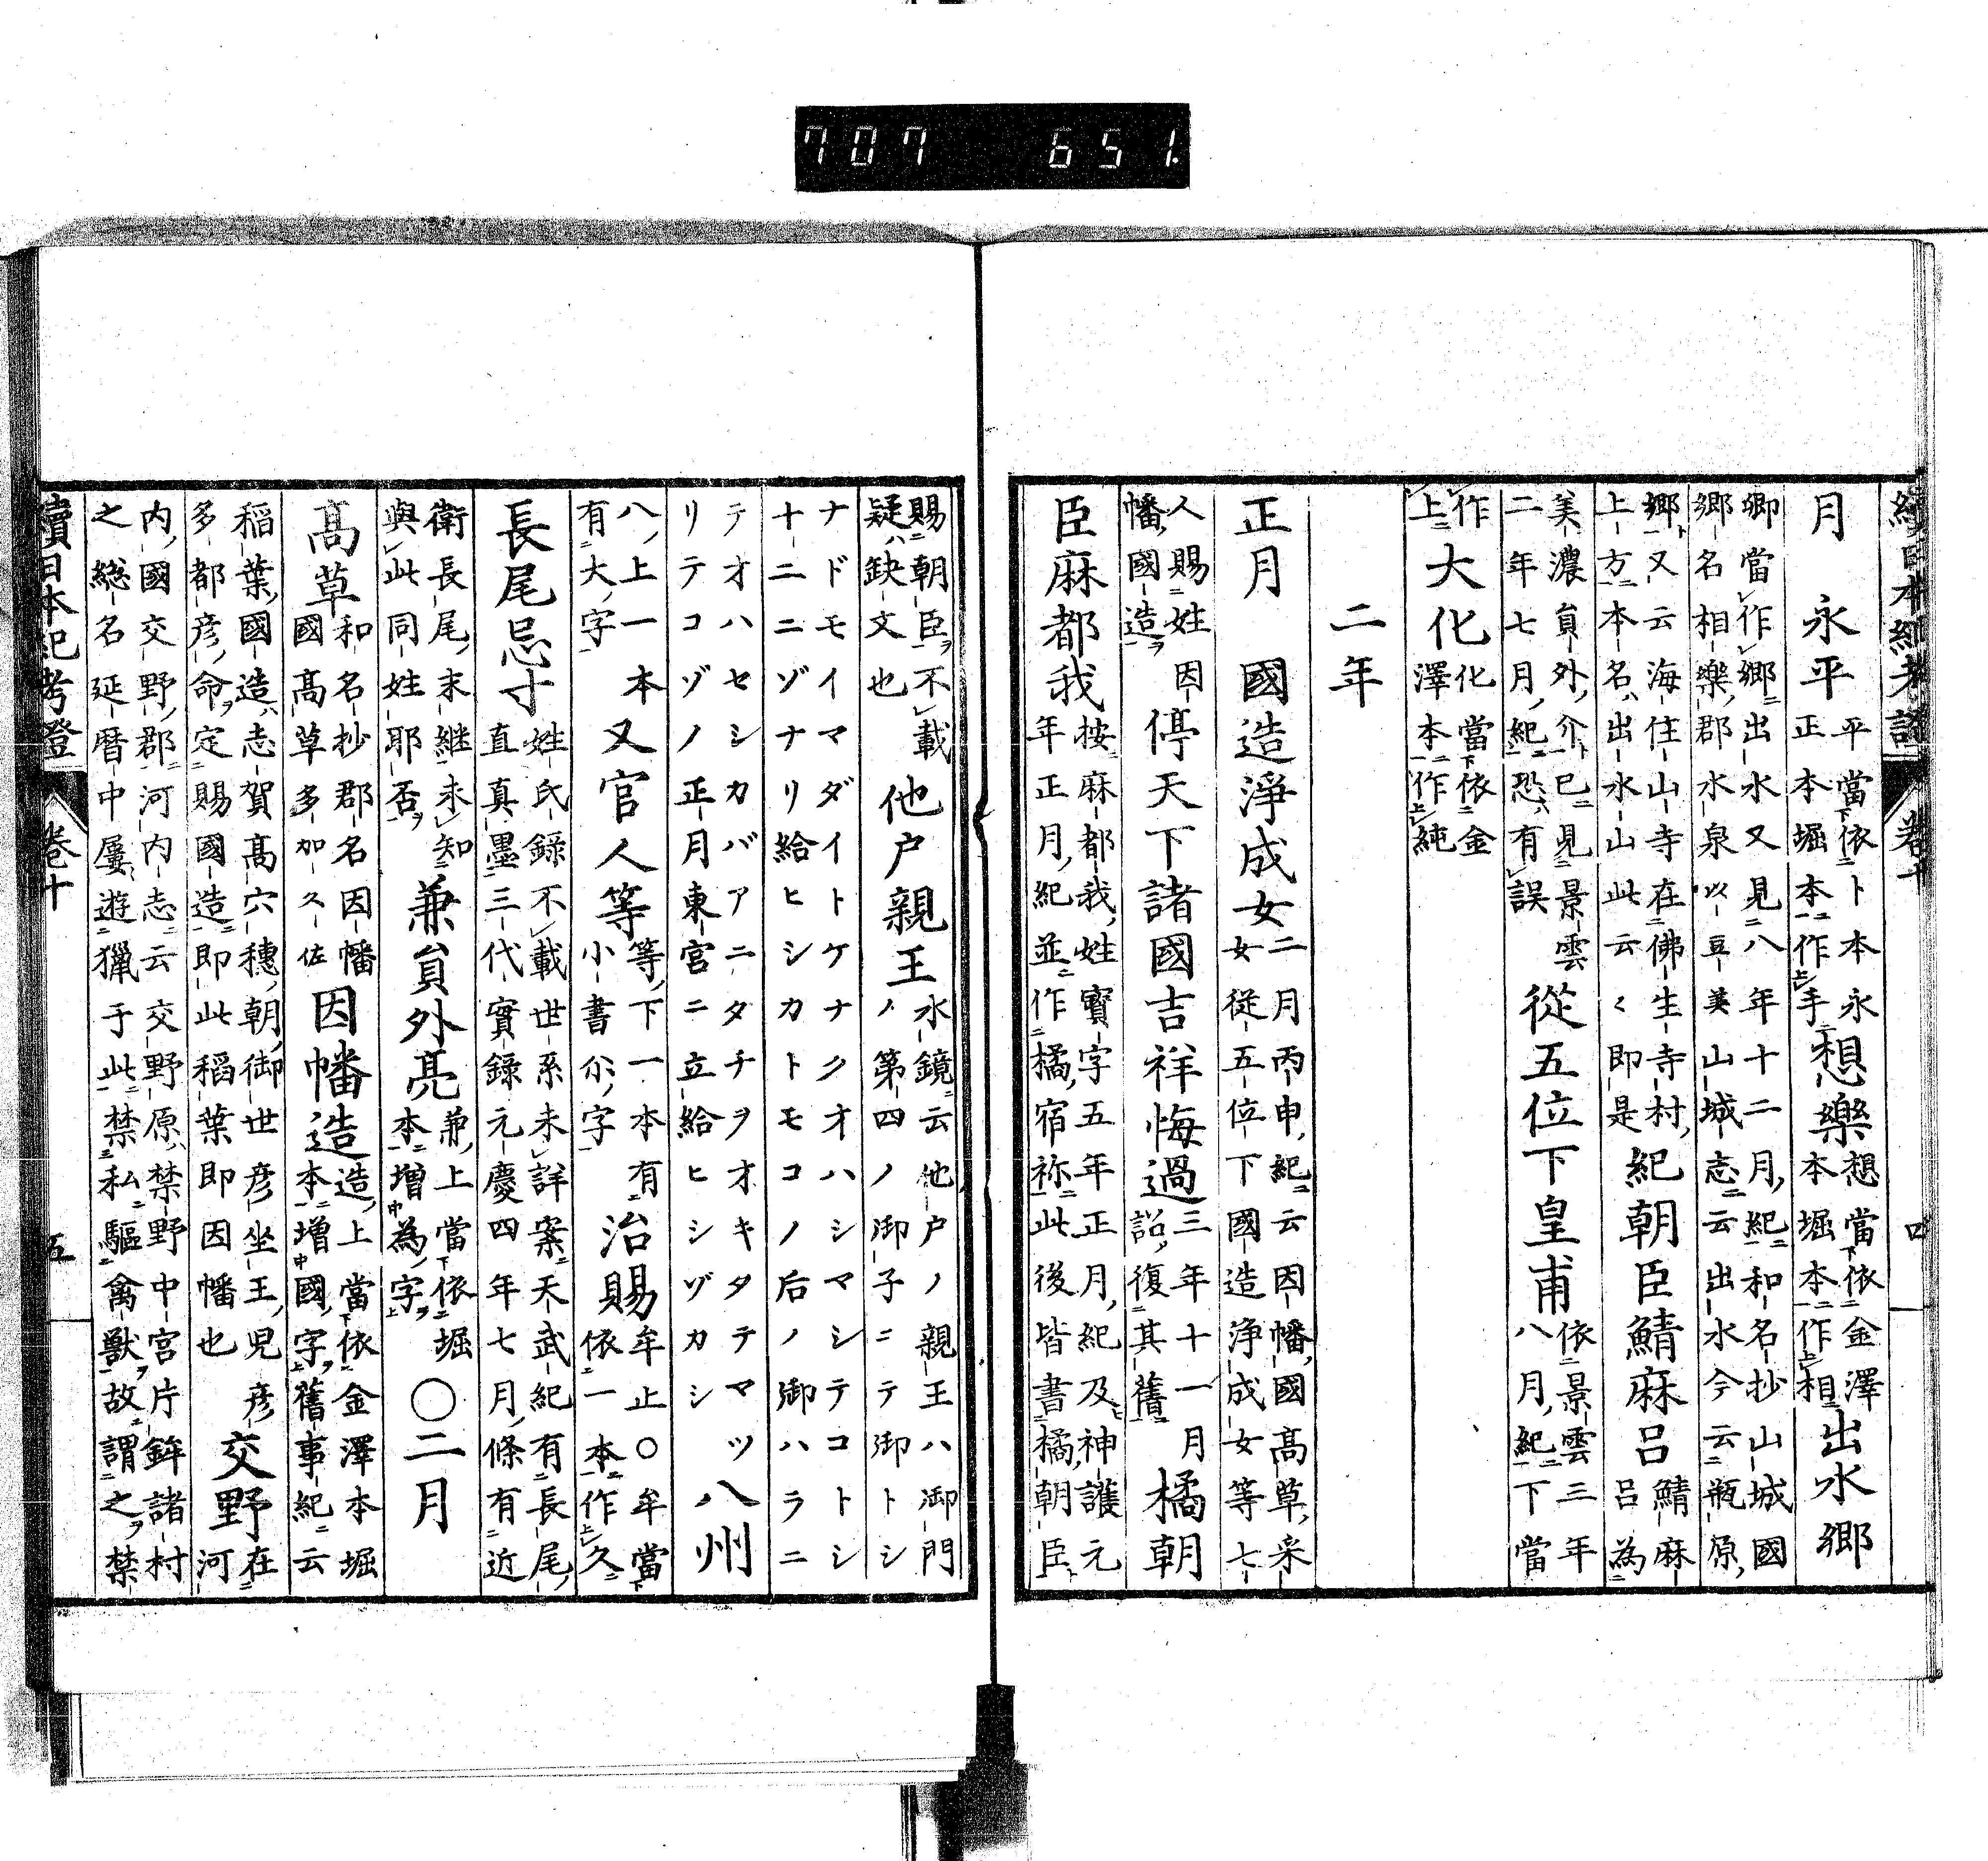 707 651.
續日本紀考證 卷十 四
月 永平 平當依卜本永
正本堀本作手 想樂 想當依金澤
本堀本作相 出水郷
卿當作郷出水又見八年十二月紀和名抄山城國
郷名相樂郡水泉以豆美山城志云出水今云瓶原
郷又云海住山寺在佛生寺村
上方本名出水山此云々即是 紀朝臣鯖麻呂 鯖麻
呂為
美濃員外介已見景雲
二年七月紀恐有誤 從五位下皇甫 依景雲三年
八月紀下當
作
上 大化 化當依金
澤本作純
二年
正月 國造淨成女 二月丙申紀云因幡國高草采
女從五位下國造淨成女等七
人賜姓因
幡國造 停天下諸國吉祥悔過 三年十一月
詔復其舊 橘朝
臣麻都我 按麻都我姓寶字五年正月紀及神護元
年正月紀並作橘宿祢此後皆書橘朝臣
賜朝臣不載
疑缺文也 他戸親王 水鏡云他戸ノ親王ハ御門
ノ第四ノ御子ニテ御トシ
ナドモイマダイトケナクオハシマシテコトシ
十二ニゾナリ給ヒシカトモコノ后ノ御ハラニ
テオハセシカバアニタチヲオキタテマツ
リテコゾノ正月東宮ニ立給ヒシヅカシ 八州
八上一本
有大字 又官人等 等下一本有
小書尒字 治賜 牟止○牟當
依一本作久
長尾忌寸 姓氏錄不載世系未詳案天武紀有長尾
直真墨三代實錄元慶四年七月條有近
衛長尾末継未知
與此同姓耶否 兼員外亮 兼上當依堀
本增為字 ○二月
高草 和名抄郡名因幡
國高草多加久佐 因幡造 造上當依金澤本堀
本增國字舊事紀云
稲葉國造志賀高穴穗朝御世彦坐王兒彦
多都彦命定賜國造即此稻葉即因幡也 交野 在
河
内國交野郡河内志云交野原禁野中宮片鉾諸村
之総名延暦中屢遊獵于此禁私驅禽獸故謂之禁
續日本紀考證 卷十 五